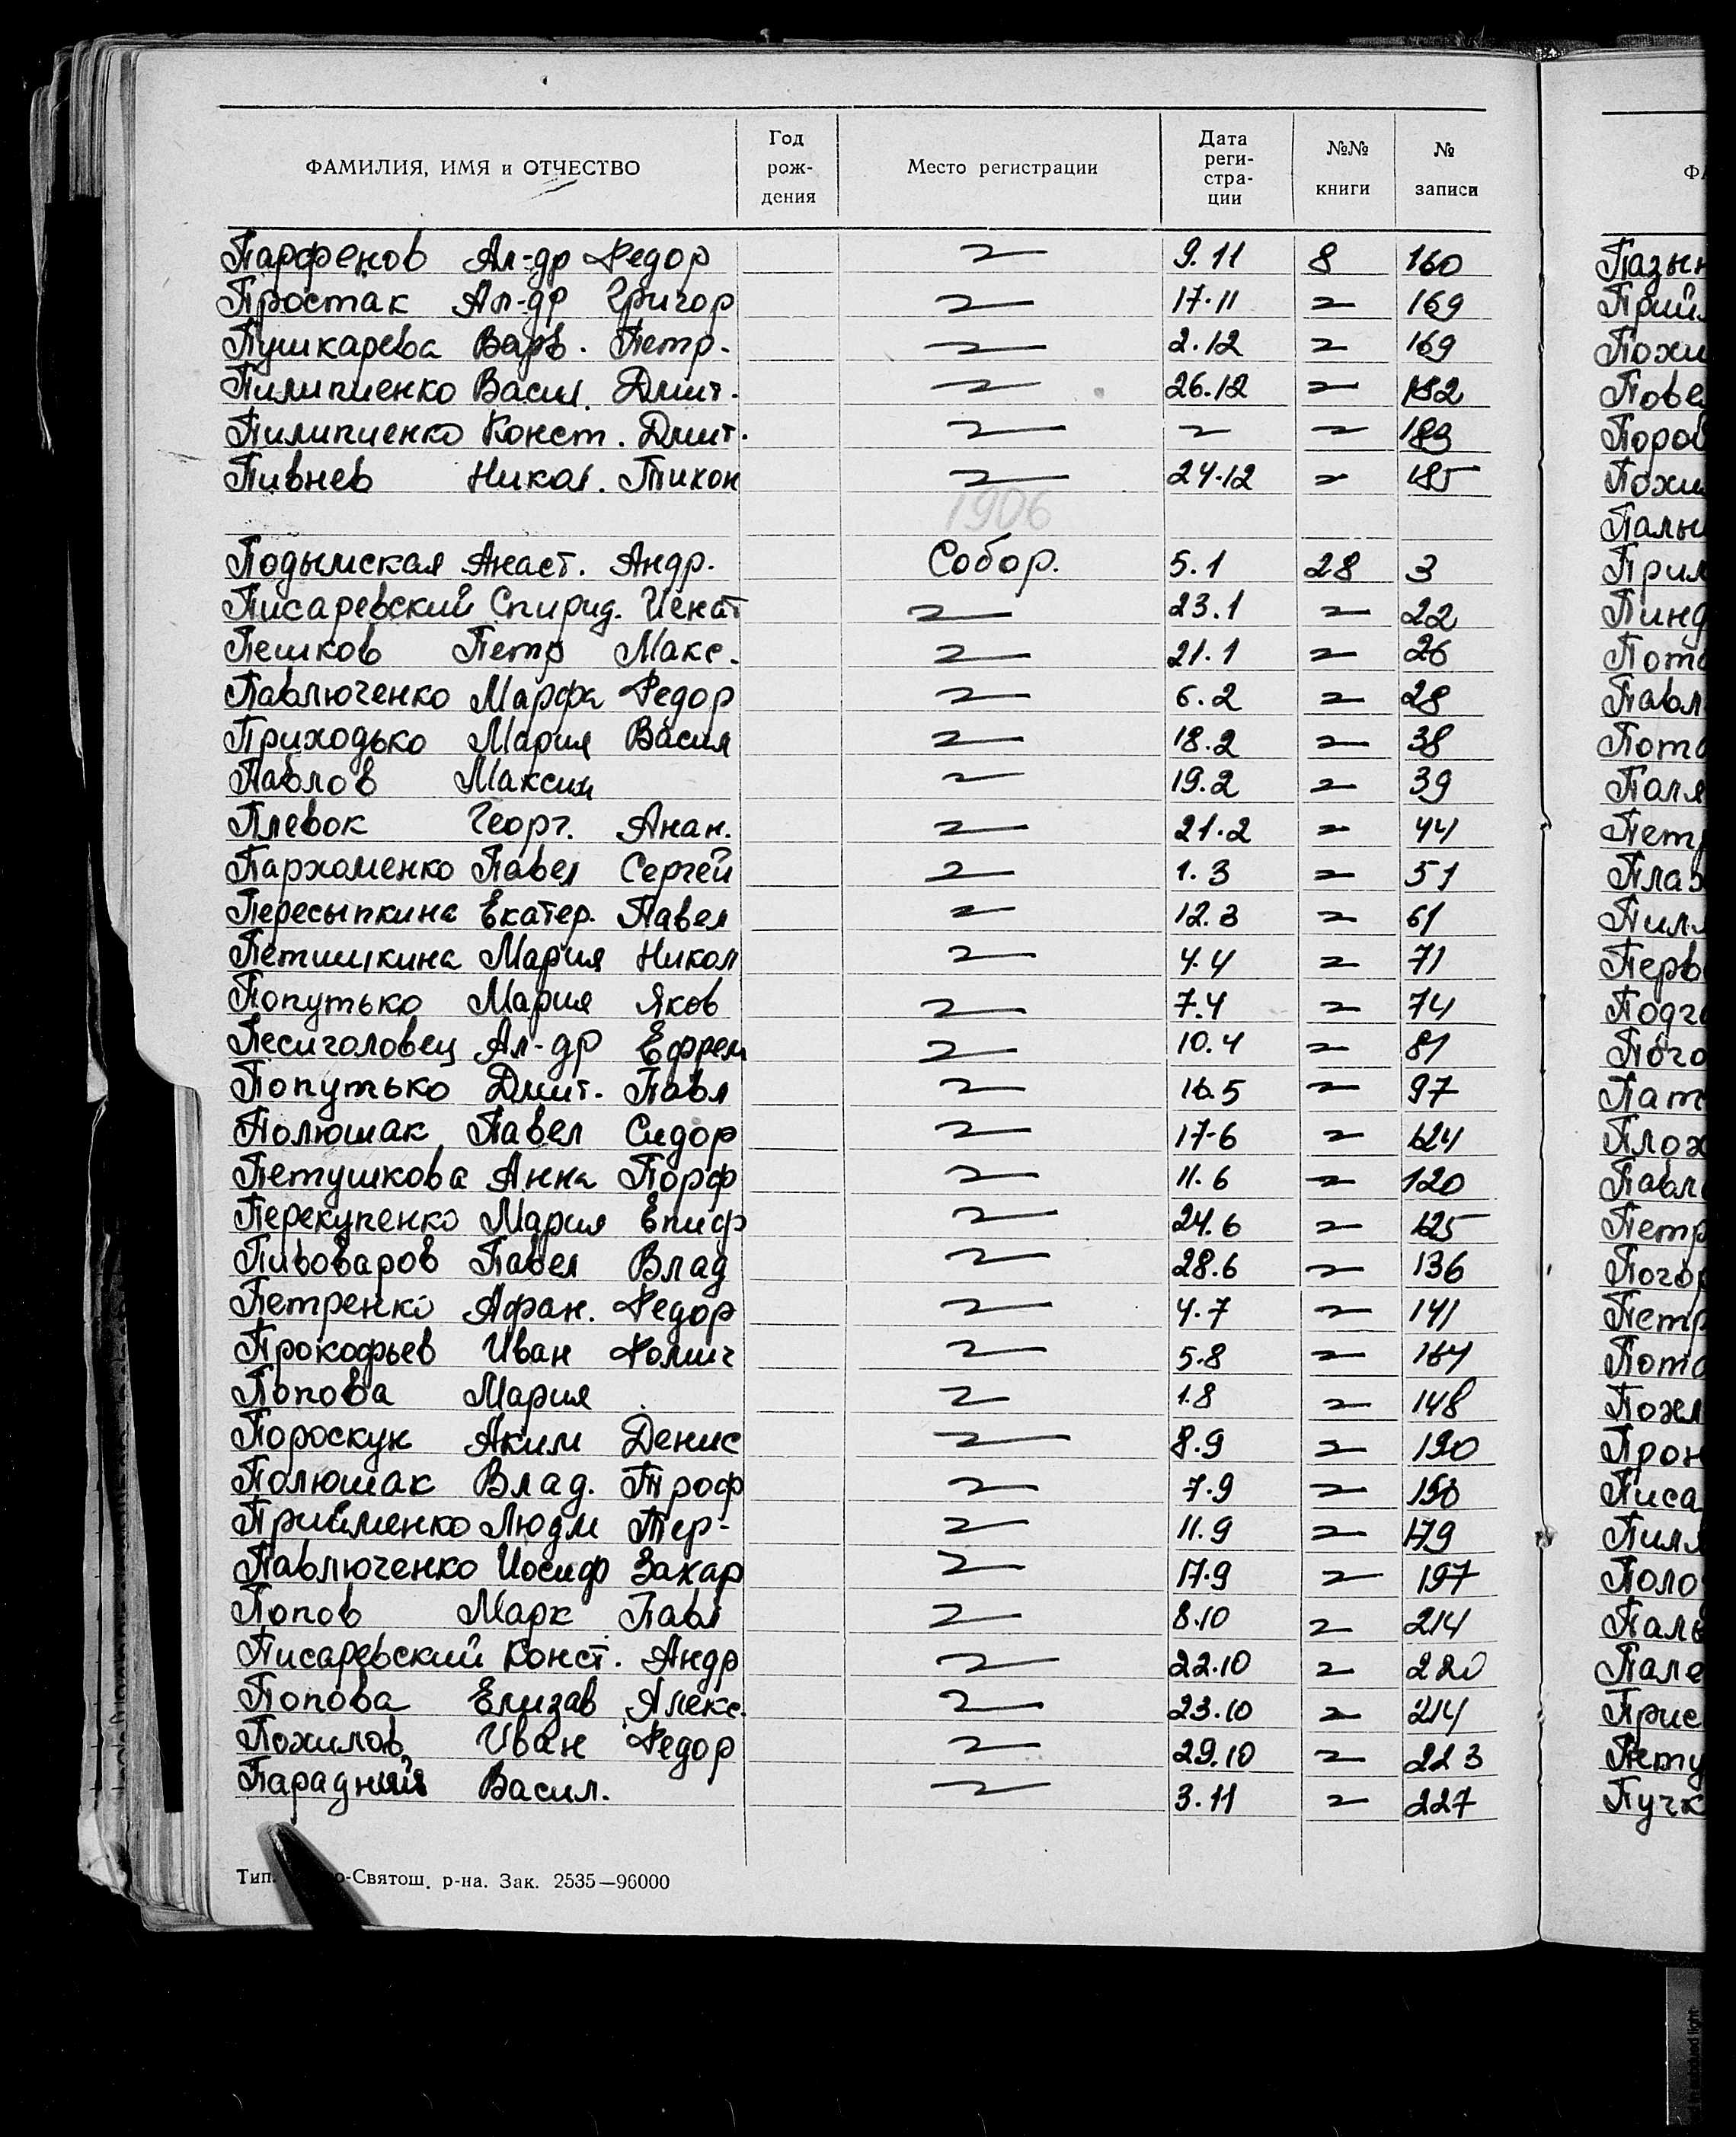 ФАМИЛИЯ, ИМЯ и ОТЧЕСТВО Год рож- дения Место регистрации Дата реги- стра- ции №№ книги № записи
Парфенов Ал-др Федор 〃 9.11 8 160
Простак Ал-др Григор 〃 17.11 〃 169
Пушкарева Варв. Петр. 〃 2.12 〃 169
Пилипиенко Васил. Дмит. 〃 26.12 〃 182
Пилипиенко Конст. Дмит. 〃 〃 〃 183
Пивнев Никол. Тихон 〃 24.12 〃 185
1906
Подымская Анаст. Андр. Собор. 5.1 28 3
Писаревский Спирид. Игнат 〃 23.1 〃 22
Пешков Петр Макс. 〃 21.1 〃 26
Павлюченко Марфа Федор 〃 6.2 〃 28
Приходько Мария Васил 〃 18.2 〃 38
Павлов Максим 〃 19.2 〃 39
Плевок Георг. Анан. 〃 21.2 〃 44
Пархоменко Павел Сергей 〃 1.3 〃 51
Пересыпкина Екатер. Павел 〃 12.3 〃 61
Петишкина Мария Никол 〃 4.4 〃 71
Попутько Мария Яков 〃 7.4 〃 74
Песиголовец Ал-др Ефрем 〃 10.4 〃 81
Попутько Дмит. Павл 〃 16.5 〃 97
Полюшак Павел Сидор 〃 17.6 〃 124
Петушкова Анна Порф 〃 11.6 〃 120
Перекупенко Мария Епиф 〃 24.6 〃 125
Пивоваров Павел Влад 〃 28.6 〃 136
Петренко Афан. Федор 〃 4.7 〃 141
Прокофьев Иван Фомич 〃 5.8 〃 164
Попова Мария 〃 1.8 〃 148
Пороскун Аким Денис 〃 8.9 〃 190
Полюшак Влад. Троф 〃 7.9 〃 190
Прийменко Людм Тер- 〃 11.9 〃 179
Павлюченко Иосиф Захар 〃 17.9 〃 197
Попов Марк Павл 〃 8.10 〃 214
Писаревский Конст. Андр 〃 22.10 〃 220
Попова Елизав Алекс. 〃 23.10 〃 214
Похилов Иван Федор 〃 29.10 〃 223
Парадний Васил. 〃 3.11 〃 227
Тип. о-Святош. р-на. Зак. 2535—96000